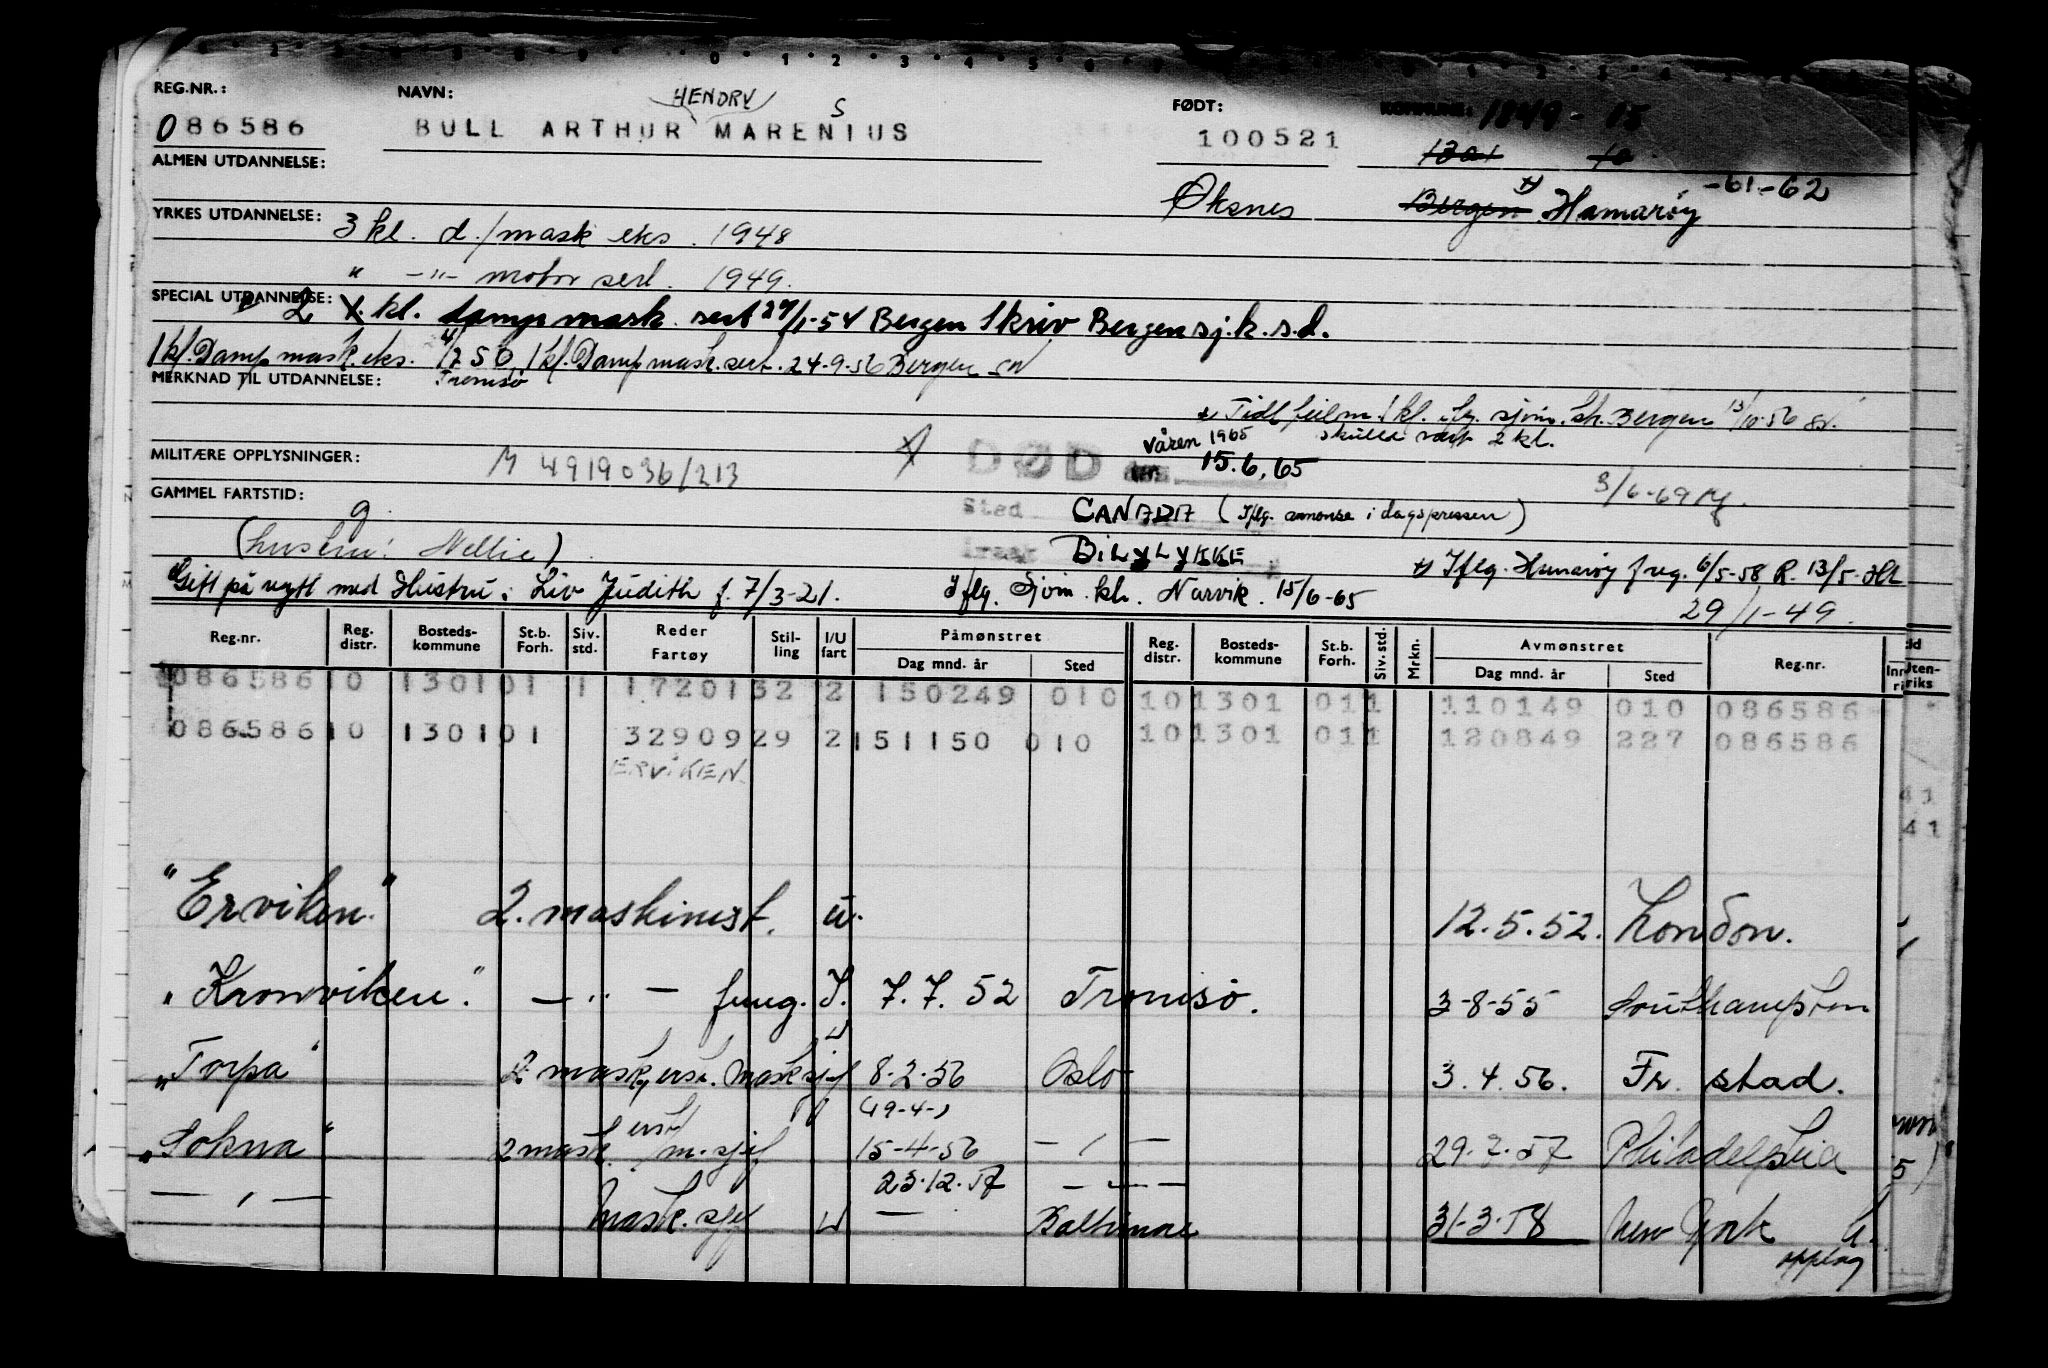 REG.NR.: NAVN: HENDRY S FØDT: KOMMUNE: 1849 - 15
086586 BULL ARTHUR MARENIUS 100521 1301 10
ALMEN UTDANNELSE:
Øksnes Bergen x) Hamarøy -61-62
YRKES UTDANNELSE: 3 kl. d./mask eks. 1948
" -"- motor sert. 1949.
SPECIAL UTDANNELSE: 2 kl. damp mask. sert 27/1-54 Bergen Skriv Bergen sj.k.s.d.
1 kl. Damp mask. eks. 4/7 50, 1 kl. Damp mask. sert. 24-9-56 Bergen
MERKNAD TIL UTDANNELSE: Tromsø
x Tidl feilm. 1 kl. flg. sjøm. kh. Bergen 13/10-56
våren 1965 skulle vært 2 kl.
MILITÆRE OPPLYSNINGER: M 4919036/213 DØD den 15.6.65
GAMMEL FARTSTID: 3/6-69
g. Sted CANADA (Iflg. annonse i dagspressen)
(hustru: Nellie) Årsak BILULYKKE
x) Iflg. Hamarøy f.reg. 6/5-58 R. 13/5-
Gift på nytt med Hustru: Liv Judith f. 7/3-21. Iflg. Sjøm. kh. Narvik. 15/6-65
29/1-49.
Reg.nr. Reg. distr. Bosteds- kommune St.b. Forh. Siv. std. Reder Fartøy Stil- ling I/U fart Påmønstret Reg. distr. Bosteds- kommune St.b. Forh. Siv. std. Mrkn. Avmønstret Reg.nr.
Dag mnd. år Sted Dag mnd. år Sted
086586 10 1301 01 1 17201 32 2 150249 010 10 1301 01 1 110149 010 086586
086586 10 1301 01 32909 29 2 151150 010 10 1301 01 1 120849 227 086586
ERVIKEN.
41
41
"Erviken." 2. maskinist. u. 12.5.52. London.
"Kronviken." -"- fung. I. 7.7.52 Tromsø. 3-8-55 Southampton
"Torpa" 2 mask, ers. masksjef U 8.2.56 Oslo 3.4.56. Fr. stad.
(19-4-)
"Sokna" 2 mask. ers/m. sjef 15-4-56 -"- 29.7.57 Philadelphia
23.12.57 -"-
-"- Mask. sjef U - Baltimore 31-3-58 New York
opplag